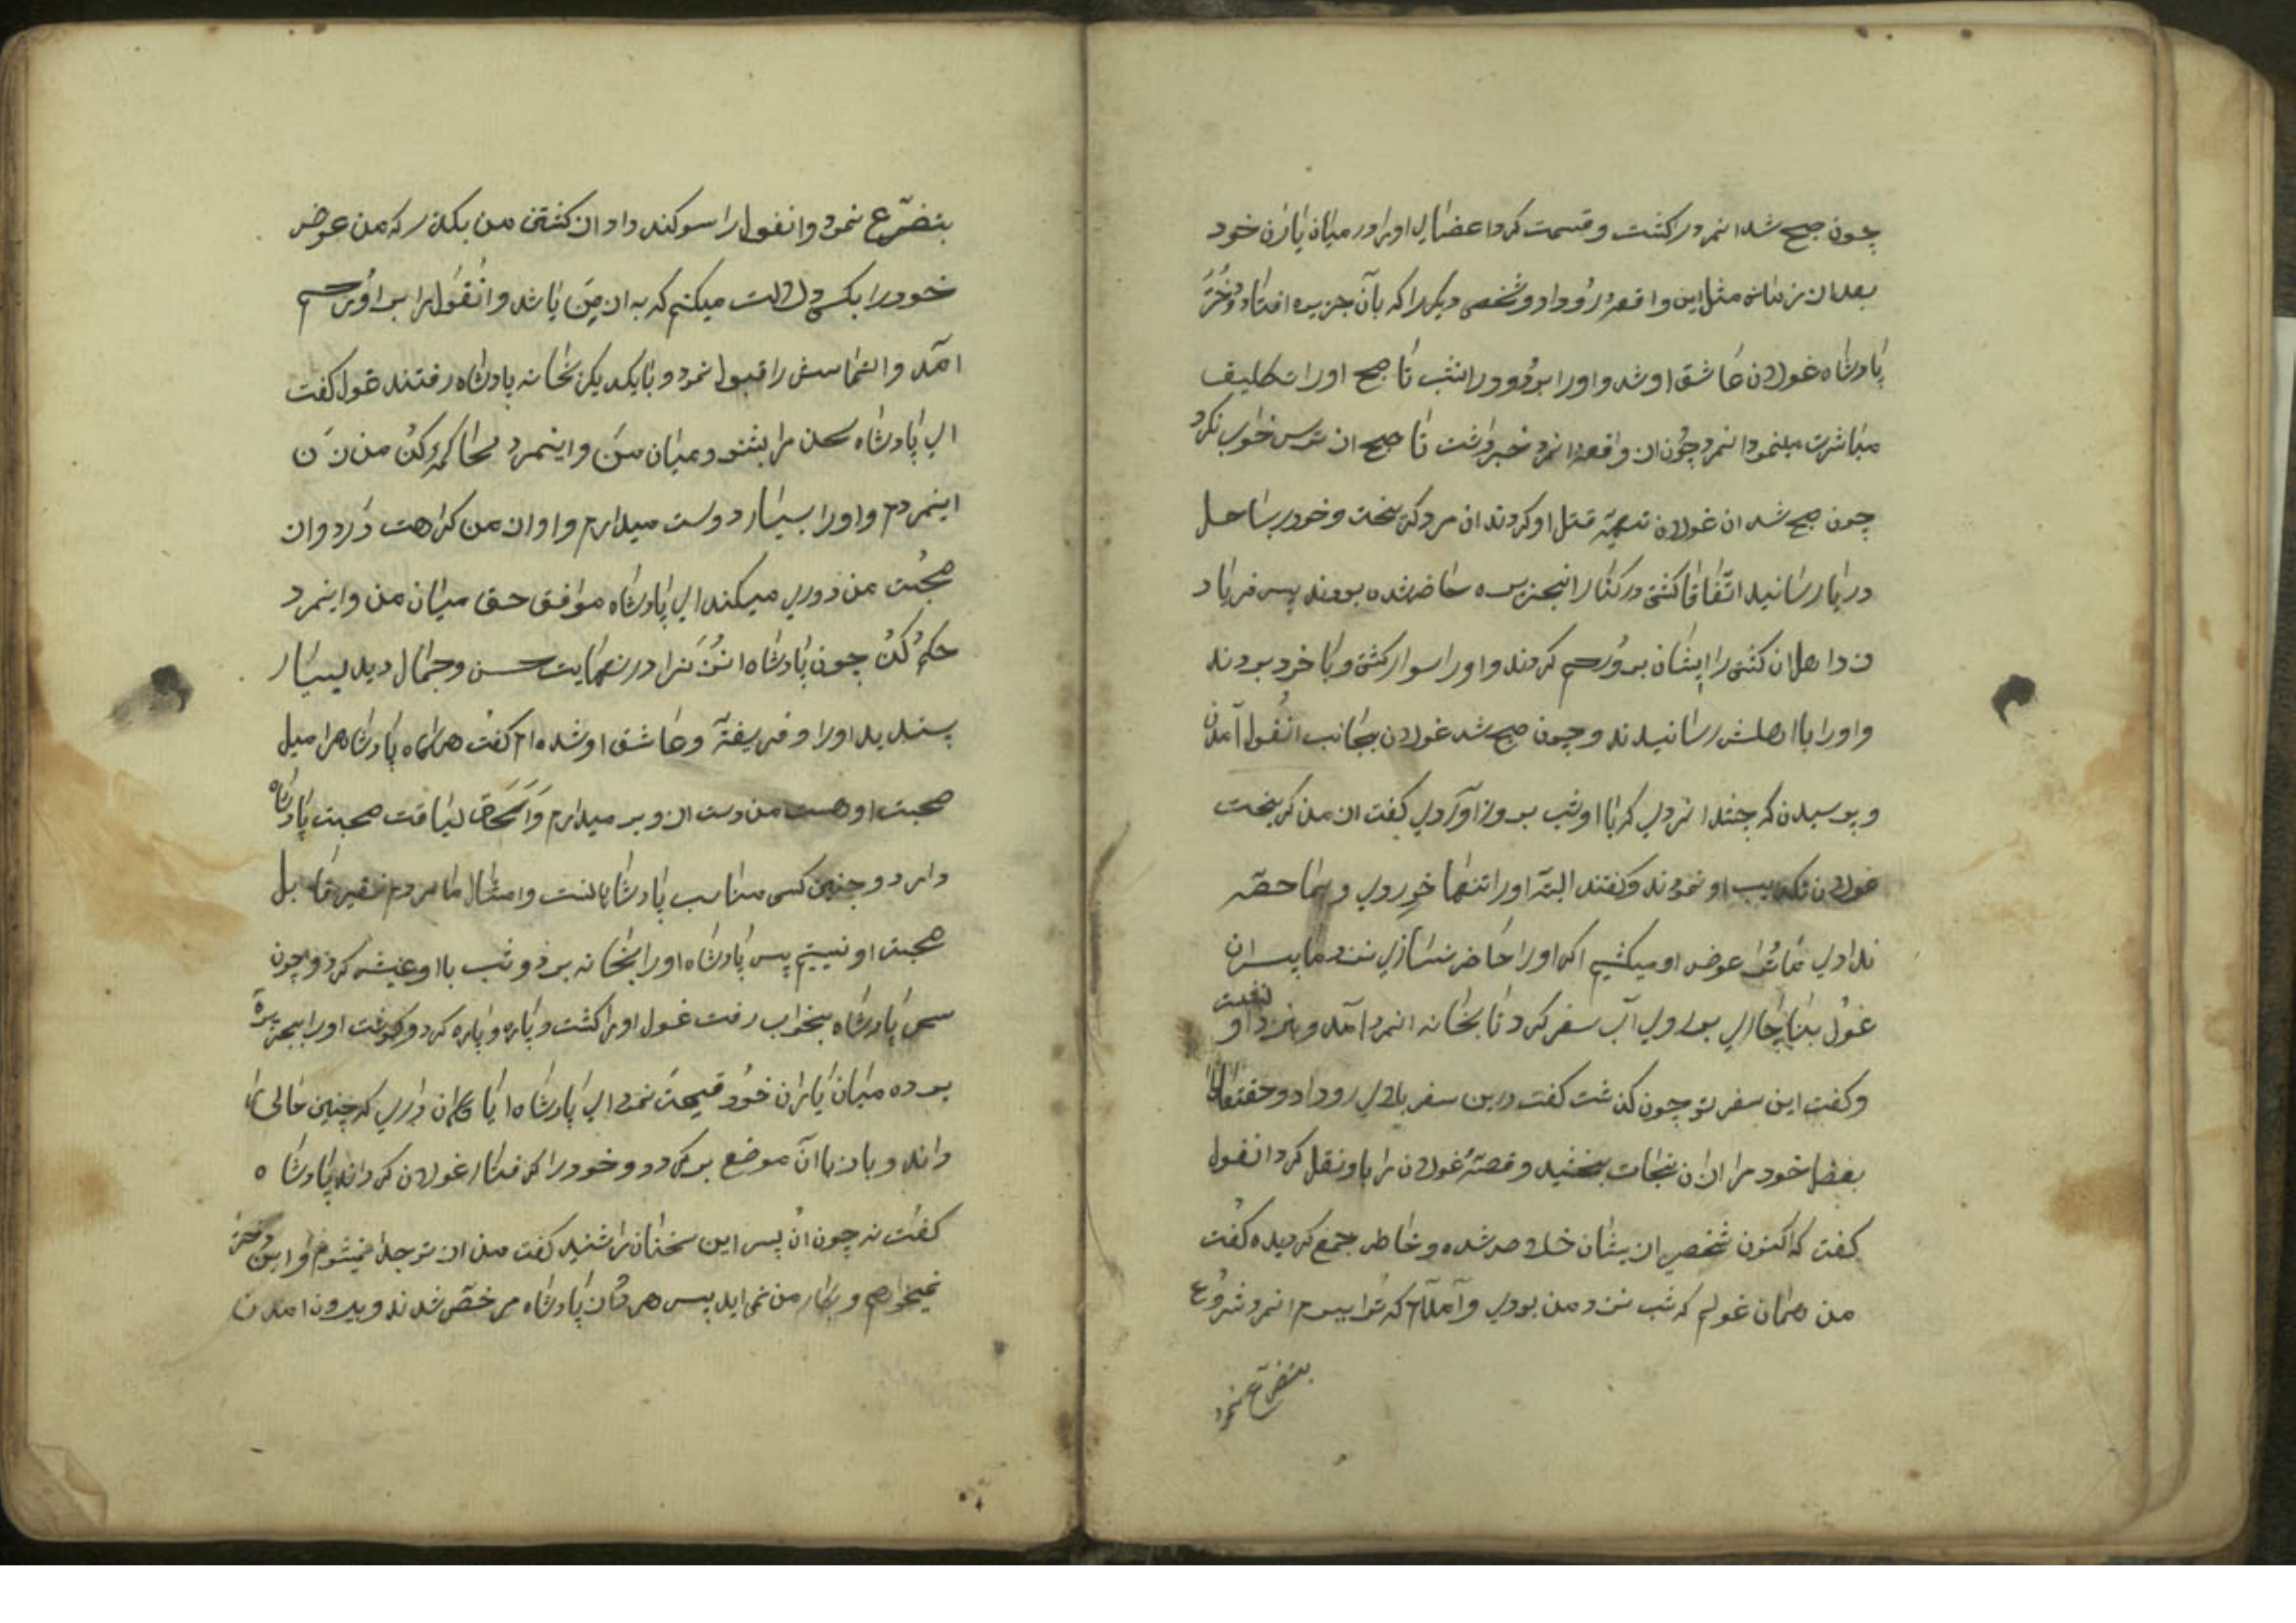 چون صبح شد انمرد را کشت و قسمت کرد اعضای اورا در میان یاران خود
بعد از زمانی مثل این واقعه رُو داد و شخصی دیکر را که بآن جزیره افتاد و دُختَر
پادشاه غولان عاشق او شد و اورا بردُ و در انشب تا صبح اورا تکلیف
مباشرت مینمود انمرد چون ان واقعه انمرد خبر داشت تا صبح از ترس خواب نکرد
چون صبح شد ان غولان تهیّه قتل او کردند ان مرد کریخت و خود را بساحل
دریا رسانید اتّفاقا کشتی در کنار انجزیره حاضر شده بودند پس فریاد
زد اهل ان کشتی را ایشان بر وُ رحم کردند و اورا سوار کشتی و با خود بردند
و اورا با اهلش رسانیدند و چون صبح شد غولان بجانب انغُول آمدن
و پرسیدن که چه شد انمردی که با او شب بروز آوردی کفت از من کریخت
غولان تکذیب او نمودند و کفتند البتّه اورا تنها خوردی و بما حصّه
ندادی ما تُرا عوض او میکشیم اکر اورا حاضر نسازی نزد ما پس ان
غوُل بناچاری بر روی آب سفر کرد تا بخانه انمرد آمد و بنزد او نشست
و کفت این سفر تو چون کذشت کفت درین سفر بلای رو داد و حقتعالی
بفضل خود مرا از ان نجات بخشید و قصّهٔ غولان را باو نقل کرد انغول
کفت که اکنون شخصی از یشان خلاص شده و خاطر جمع کردیده کفت
من همان غولم که شب نزد من بودی و آمده‌ام که تُرا ببرم انمرد شروع
بتضرّع نمود
بتضرّع نمود و انغول را سوکند داد از کشتن من بکذر که من عوض
خود را بکسی دلالت میکنم که به از مِن باشد و انغول را بر او رحم
آمد و التماسش را قبول نمود و با یکدیکر بخانه پادشاه رفتند غول کفت
ای پادشاه سخن مرا بشنو و میان من و اینمرد محاکمه کن من زَن
اینمردم و اورا بسیار دوست میدارم و او از من کراهت دارد و از
صحبت من دوری میکند ای پادشاه موافق حق میان من و اینمرد
حکم کن چون پادشاه انزَن را در نهایت حسن و جمال دید بسیار
پسندید اورا و فریفته و عاشق او شده‌ام کفت هرکاه پادشاه را میل
صحبت او هست من دست از و بر میدارم وَ اَلحَق لیاقت صحبت پادشاه
دارد و چنین کسی مناسب پادشاهانست و امثال ما مردم فقیر قابل
صحبت او نییتیم پس پادشاه اورا بخانه برد و شب با او عیش کرد و چون
سحر پادشاه بخواب رفت غول اورا کشت و پاره و پاره کرد و کوشت اورا بجزیره
برده میان یاران خود قیمت نمود ای پادشاه ایا کمان داری که چنین حالی را
داند و باز باآن موضع برکردد و خود را کرفتار غولان کرداند پادشاه
کفت نه چون ان پسر این سخنان را شنید کفت من از تو جدا نمیشوم و این دختر
نمیخواهم و بکار من نمی‌اید پس هر دُ از پادشاه مرخصّ شدند و بیرون امدن